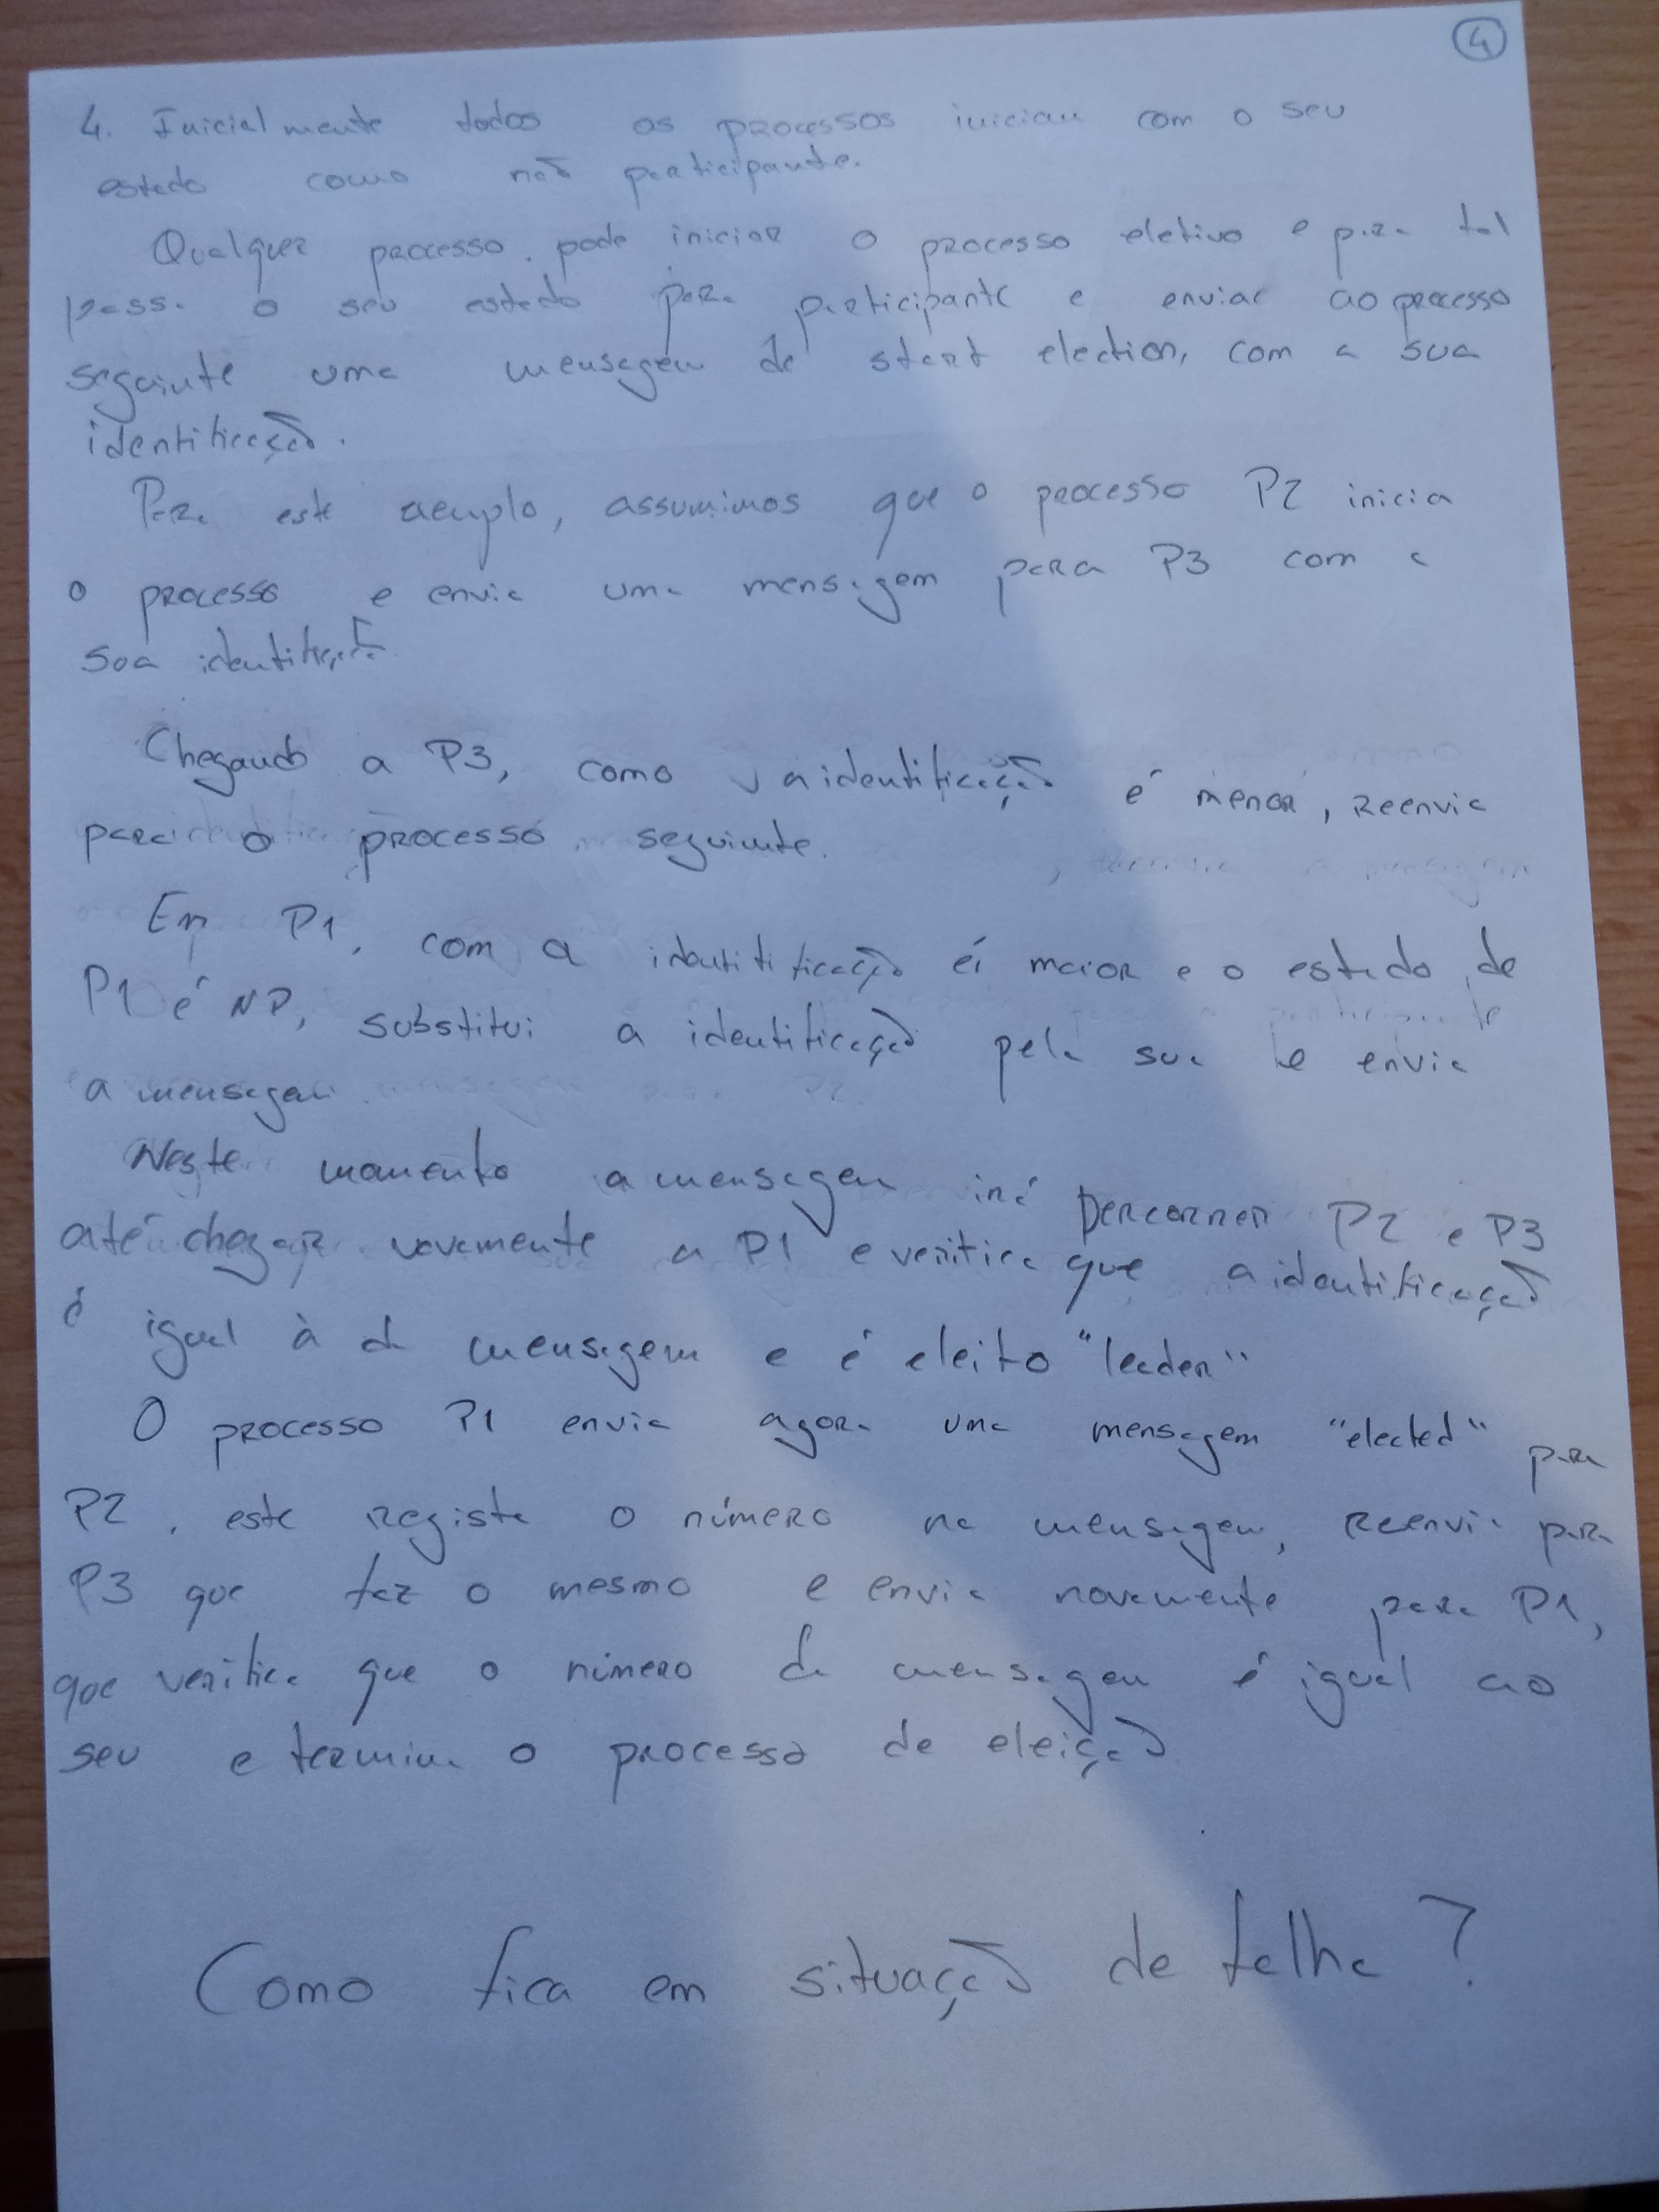 4
4. Inicialmente todos os processos iniciam com o seu
estado como não participante.
Qualquer processo pode iniciar o processo eletivo e para tal
passa o seu estado para participante e enviar ao processo
seguinte uma mensagem de start election, com a sua
identificação.
Para este exemplo, assumimos que o processo P2 inicia
o processo e envia uma mensagem para P3 com a
sua identificação
Chegando a P3, como a identificação é menor, reenvia
para o processo seguinte.
Em P1, com a identificação é maior e o estado de
P1 é NP, substitui a identificação pela sua e envia
a mensagem.
Neste momento a mensagem irá percorrer P2 e P3
até chegar novamente a P1 e verifica que a identificação
é igual à da mensagem e é eleito "leader"
O processo P1 envia agora uma mensagem "elected" para
P2, este regista o número na mensagem, reenvia para
P3 que faz o mesmo e envia novamente para P1,
que verifica que o número da mensagem é igual ao
seu e termina o processo de eleição
Como fica em situação de falha?